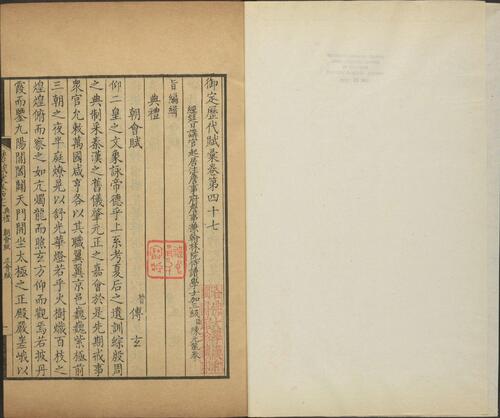 御定歷代賦彙卷第四十七
經筵日講官起居注詹事府詹事兼翰林院侍讀學士加三級臣陳元龍奉
旨編緝
典禮
朝會賦
晉傅玄
仰二皇之文象詠帝德乎上系考夏后之遺訓綜殷周
之典制采秦漢之舊儀肇元正之嘉會於是先期戒事
衆官允敕萬國咸亨各以其職翼翼京邑巍巍紫極前
三朝之夜半庭燎晃以舒光華燈若乎火樹熾百枝之
煌煌俯而察之如亢燭龍而照玄方仰而觀焉若披丹
霞而鑒九陽閶闔闢天門闓坐太極之正殿嚴嵯峨以